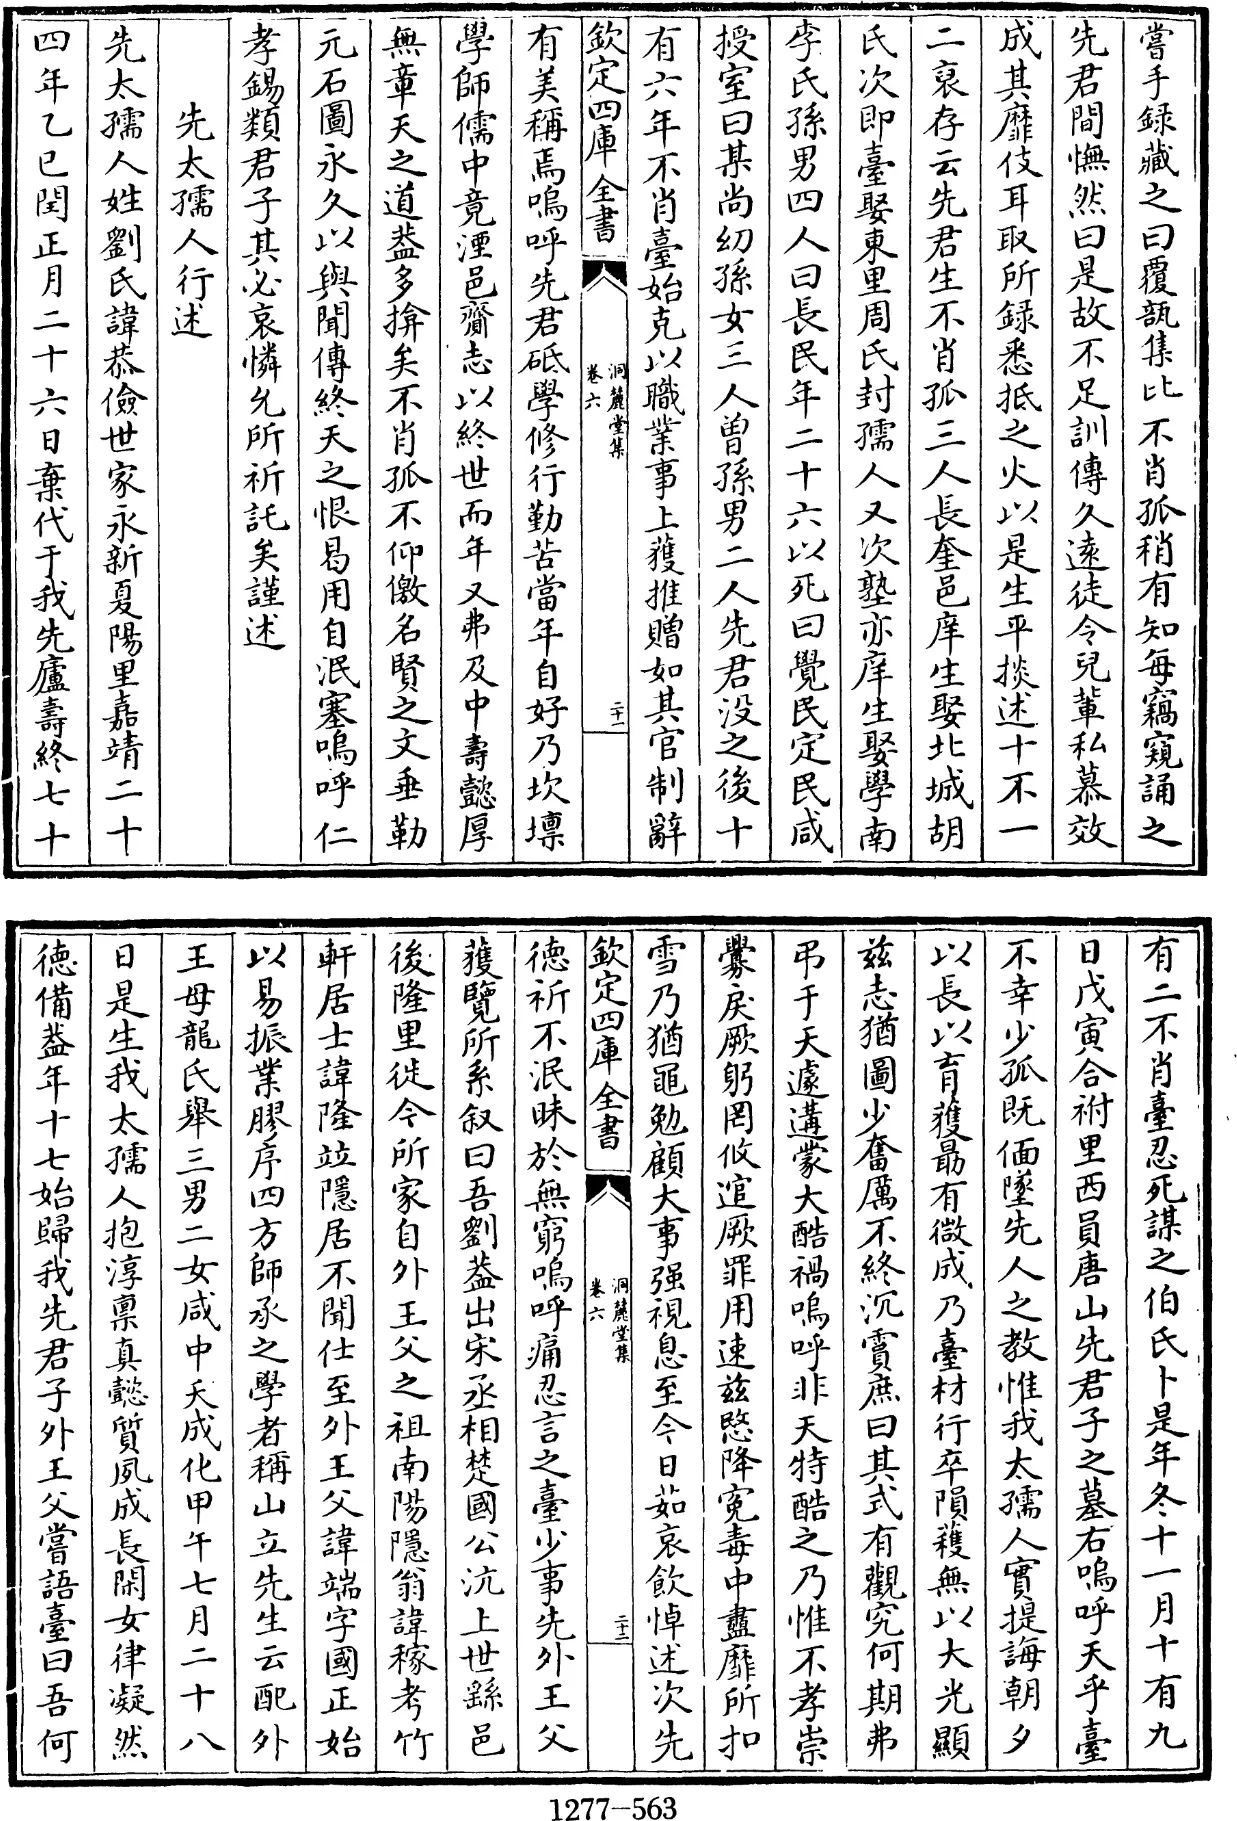 嘗手録藏之曰覆瓿集比不肖孤稍有知每竊窺誦之
先君間憮然曰是故不足訓傳久遠徒令兒輩私慕效
成其靡伎耳取所録悉抵之火以是生平掞述十不一
二裒存云先君生不肖孤三人長奎邑庠生娶北城胡
氏次即臺娶東里周氏封孺人又次塾亦庠生娶學南
李氏孫男四人曰長民年二十六以死曰覺民定民咸
授室曰某尚幼孫女三人曽孫男二人先君没之後十
有六年不肖臺始克以職業事上獲推贈如其官制辭
欽定四庫全書
洞麓堂集
卷六
二十一
有美稱焉嗚呼先君砥學修行勤苦當年自好乃坎壈
學師儒中竟湮邑齎志以終世而年又弗及中壽懿厚
無章天之道葢多揜矣不肖孤不仰徼名賢之文垂勒
元石圖永久以與聞傳終天之恨曷用自泯塞嗚呼仁
孝錫類君子其必哀憐允所祈託矣謹述
先太孺人行述
先太孺人姓劉氏諱恭儉世家永新夏陽里嘉靖二十
四年乙巳閏正月二十六日棄代于我先廬壽終七十
有二不肖臺忍死謀之伯氏卜是年冬十一月十有九
日戊寅合祔里西員唐山先君子之墓右嗚呼天乎臺
不幸少孤既偭墜先人之教惟我太孺人實提誨朝夕
以長以育獲朂有微成乃臺材行卒隕穫無以大光顯
兹志猶圖少奮厲不終沉霣庶曰其式有觀究何期弗
弔于天遽遘蒙大酷禍嗚呼非天特酷之乃惟不孝崇
釁戾厥躬罔攸逭厥罪用速兹愍降寃毒中蠱靡所扣
雪乃猶黽勉顧大事强視息至今日茹哀飲悼述次先
欽定四庫全書
洞麓堂集
卷六
二十二
德祈不泯昧於無窮嗚呼痛忍言之臺少事先外王父
獲覽所系叙曰吾劉葢出宋丞相楚國公沆上世繇邑
後隆里徙今所家自外王父之祖南陽隱翁諱稼考竹
軒居士諱隆竝隱居不聞仕至外王父諱端字國正始
以易振業膠序四方師承之學者稱山立先生云配外
王母龍氏舉三男二女咸中夭成化甲午七月二十八
日是生我太孺人抱淳禀真懿質夙成長閑女律凝然
德備葢年十七始歸我先君子外王父嘗語臺曰吾何
1277—563